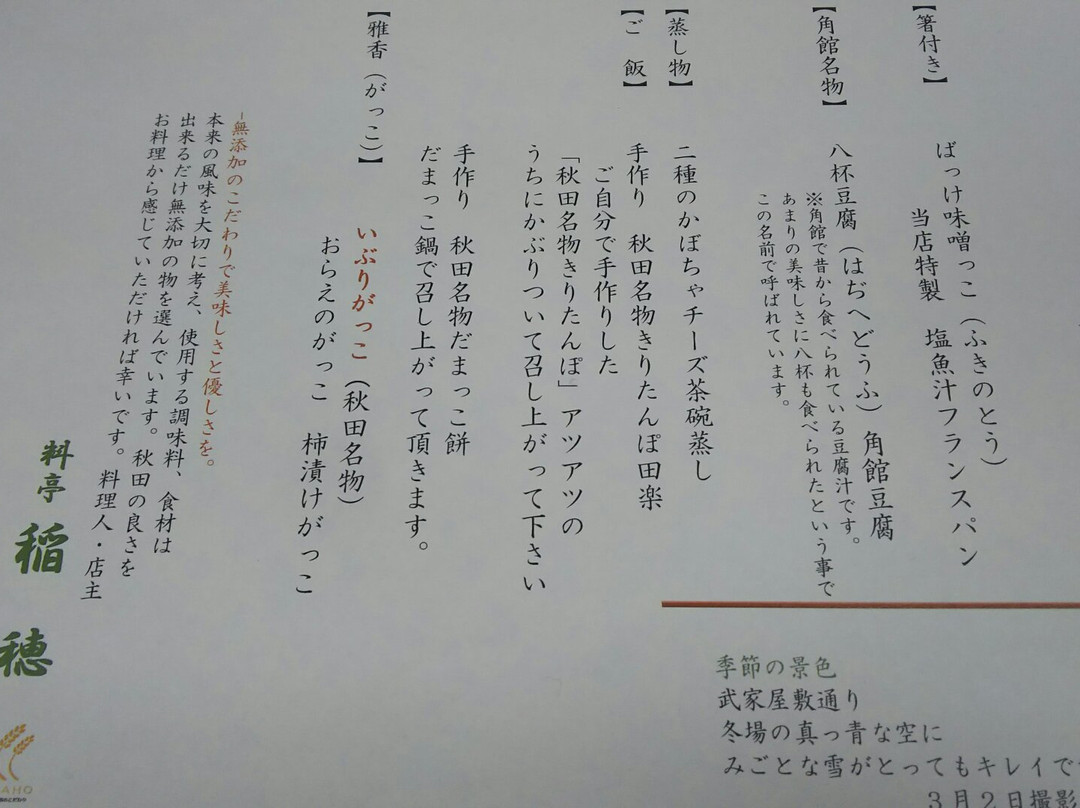 【箸付き】
ばっけ味噌っこ（ふきのとう）
当店特製　塩魚汁フランスパン
【角館名物】
八杯豆腐（はぢへどうふ）角館豆腐
※角館で昔から食べられている豆腐汁です。
あまりの美味しさに八杯も食べられたという事で
この名前で呼ばれています。
【蒸し物】
二種のかぼちゃチーズ茶碗蒸し
【ご　飯】
手作り　秋田名物きりたんぽ田楽
ご自分で手作りした
「秋田名物きりたんぽ」アツアツの
うちにかぶりついて召し上がって下さい
手作り　秋田名物だまっこ餅
だまっこ鍋で召し上がって頂きます。
【雅香（がっこ）】
いぶりがっこ（秋田名物）
おらえのがっこ　柿漬けがっこ
-無添加のこだわりで美味しさと優しさを。
本来の風味を大切に考え、使用する調味料、食材は
出来るだけ無添加の物を選んでいます。秋田の良さを
お料理から感じていただければ幸いです。料理人・店主
料亭　稲穂
AHO
季節の景色
武家屋敷通り
冬場の真っ青な空に
みごとな雪がとってもキレイで
3月2日撮影